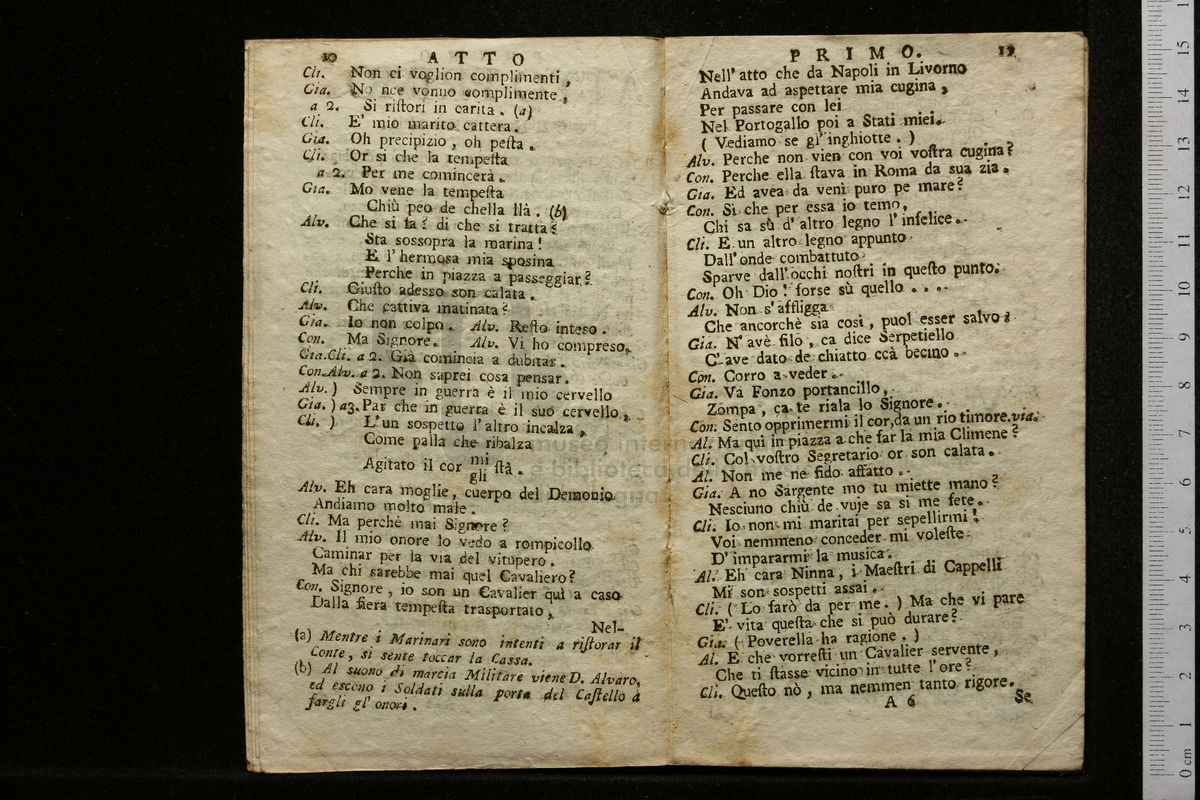 10 ATTO
Cli. Non ci voglion complimenti,
Gia. No nce vonno complimente,
a 2. Si ristori in carita. (a)
Cli. E' mio marito cattera.
Gia. Oh precipizio, oh pesta.
Cli. Or si che la tempesta
a 2. Per me comincerà.
Gia. Mo vene la tempesta
Chiù peo de chella llà. (b)
Alv. Che si fa? di che si tratta?
Sta sossopra la marina!
E l'hermosa mia sposina
Perche in piazza a passeggiar?
Cli. Giusto adesso son calata.
Alv. Che cattiva matinata?
Gia. Io non colpo. Alv. Resto inteso.
Con. Ma Signore. Alv. Vi ho compreso.
Gia.Cli. a 2. Già comincia a dubitar.
Con.Alv. a 2. Non saprei cosa pensar.
Alv. ) Sempre in guerra è il mio cervello
Gia. ) a3. Par che in guerra è il suo cervello,
Cli. ) L'un sospetto l'altro incalza,
Come palla che ribalza
Agitato il cor mi stà.
gli
Alv. Eh cara moglie, cuerpo del Demonio
Andiamo molto male.
Cli. Ma perchè mai Signore?
Alv. Il mio onore lo vedo a rompicollo
Caminar per la via del vitupero.
Ma chi sarebbe mai quel Cavaliero?
Con. Signore, io son un Cavalier quì a caso
Dalla fiera tempesta trasportato,
Nel-
(a) Mentre i Marinari sono intenti a ristorar il
Conte, si sente toccar la Cassa.
(b) Al suono di marcia Militare viene D. Alvaro,
ed escono i Soldati sulla porta del Castello à
fargli gl' onori.
PRIMO. 11
Nell'atto che da Napoli in Livorno
Andava ad aspettare mia cugina,
Per passare con lei
Nel Portogallo poi a Stati miei.
( Vediamo se gl'inghiotte. )
Alv. Perche non vien con voi vostra cugina?
Con. Perche ella stava in Roma da sua zia.
Gia. Ed avea da venì puro pe mare?
Con. Sì che per essa io temo,
Chi sa sù d'altro legno l'infelice.
Cli. E un altro legno appunto
Dall'onde combattuto
Sparve dall'occhi nostri in questo punto.
Con. Oh Dio! forse sù quello ....
Alv. Non s'affligga
Che ancorchè sia così, puol esser salvo?
Gia. N'avè filo, ca dice Serpetiello
C'ave dato de chiatto ccà becino.
Con. Corro a veder.
Gia. Va Fonzo portancillo,
Zompa, ca te riala lo Signore.
Con. Sento opprimermi il cor, da un rio timore. via.
Al. Ma qui in piazza a che far la mia Climene?
Cli. Col vostro Segretario or son calata.
Al. Non me ne fido affatto.
Gia. A no Sargente mo tu miette mano?
Nesciuno chiù de vuje sa si me fete.
Cli. Io non mi maritai per sepellirmi!
Voi nemmeno conceder mi voleste
D'impararmi la musica.
Al. Eh cara Ninna, i Maestri di Cappelli
Mi son sospetti assai.
Cli. ( Lo farò da per me. ) Ma che vi pare
E' vita questa che si può durare?
Gia. ( Poverella ha ragione. )
Al. E che vorresti un Cavalier servente,
Che ti stasse vicino in tutte l'ore?
Cli. Questo nò, ma nemmen tanto rigore.
A 6 Se